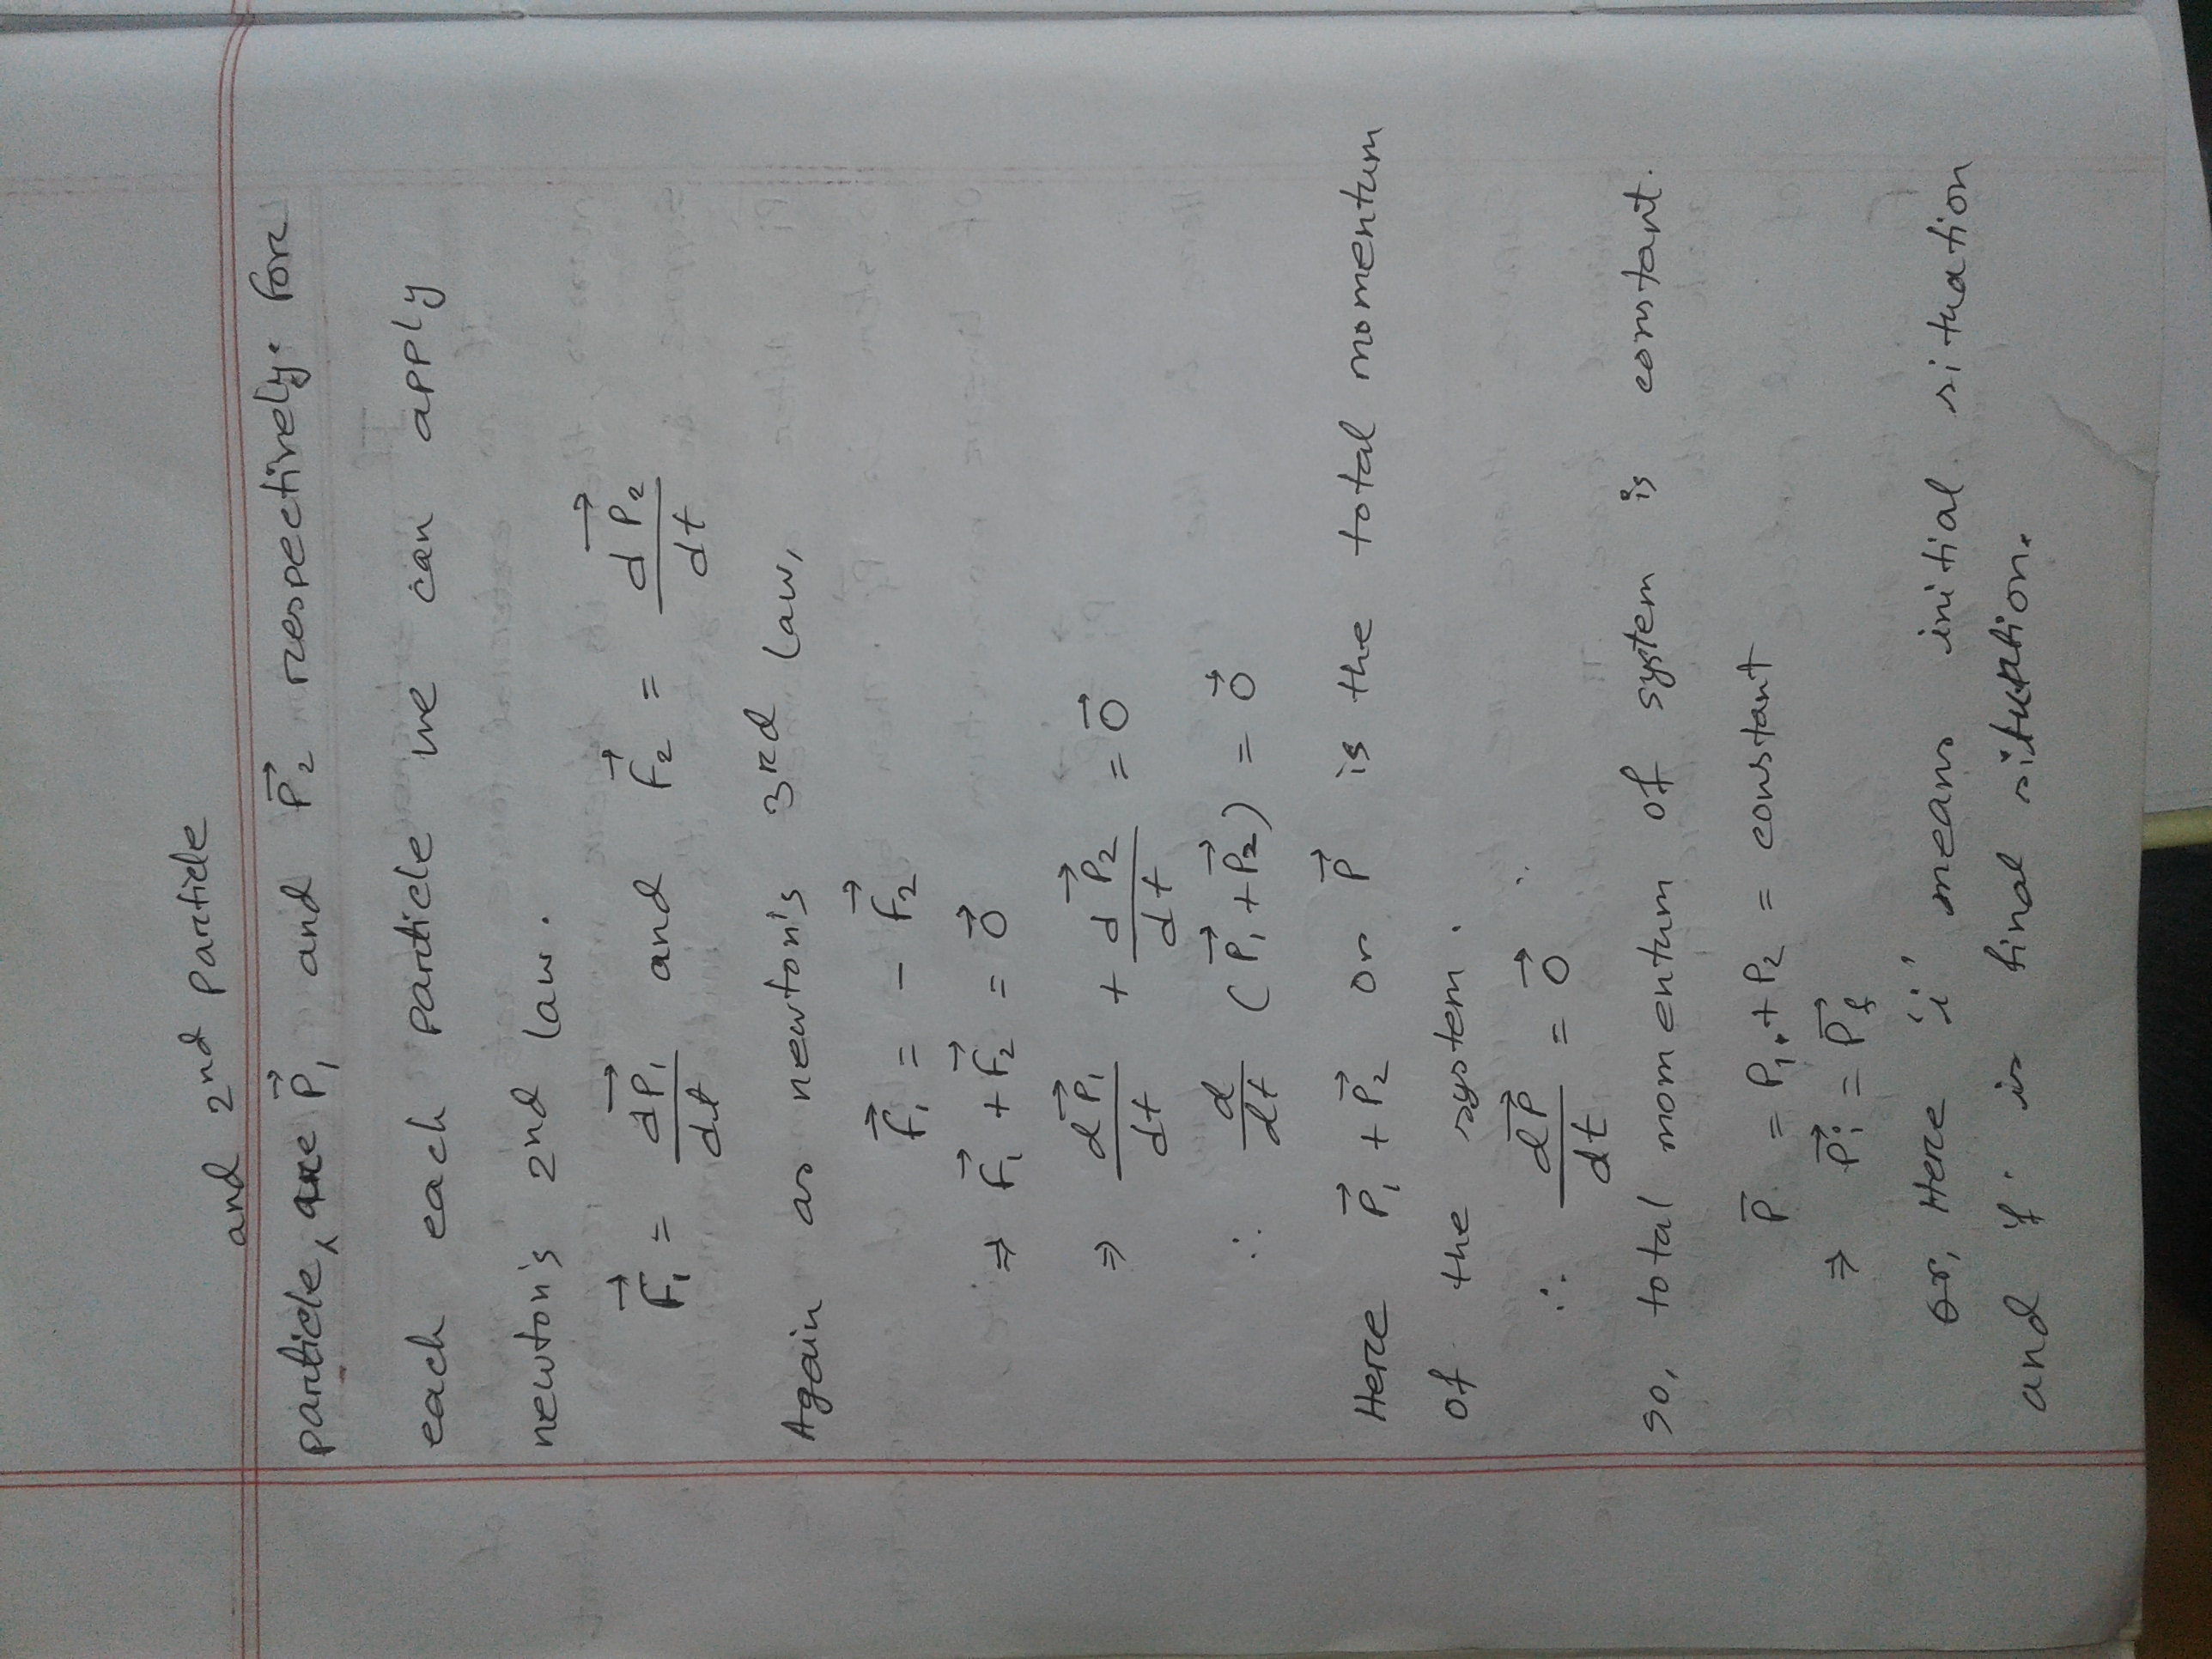 and 2nd particle
particle, are P⃗₁ and P⃗₂ respectively. For
each each particle we can apply
newton's 2nd law.
F⃗₁ = dP⃗₁/dt and F⃗₂ = dP⃗₂/dt
Again as newton's 3rd law,
F⃗₁ = - F⃗₂
⇒ F⃗₁ + F⃗₂ = 0⃗
⇒ dP⃗₁/dt + dP⃗₂/dt = 0⃗
∴ d/dt (P⃗₁ + P⃗₂) = 0⃗
Here P⃗₁ + P⃗₂ or P⃗ is the total momentum
of the system.
∴ dP⃗/dt = 0⃗
so, total momentum of system is constant.
P̅ = P₁ + P₂ = constant
⇒ P⃗i = P⃗f
or, Here 'i' means initial situation
and 'f' is final situation.